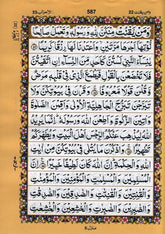 587
وَمَنْ يَّقْنُتْ مِنْكُنَّ لِلّٰهِ وَرَسُوْلِهٖ وَتَعْمَلْ صَالِحًا
نُّؤْتِهَآ اَجْرَهَا مَرَّتَيْنِ وَاَعْتَدْنَا لَهَا رِزْقًا كَرِيْمًا
يٰنِسَآءَ النَّبِيِّ لَسْتُنَّ كَاَحَدٍ مِّنَ النِّسَآءِ اِنِ اتَّقَيْتُنَّ
فَلَا تَخْضَعْنَ بِالْقَوْلِ فَيَطْمَعَ الَّذِيْ فِيْ قَلْبِهٖ مَرَضٌ
وَّقُلْنَ قَوْلًا مَّعْرُوْفًا وَقَرْنَ فِيْ بُيُوْتِكُنَّ وَلَا
تَبَرَّجْنَ تَبَرُّجَ الْجَاهِلِيَّةِ الْاُوْلٰى وَاَقِمْنَ الصَّلٰوةَ
وَاٰتِيْنَ الزَّكٰوةَ وَاَطِعْنَ اللّٰهَ وَرَسُوْلَهٗ اِنَّمَا يُرِيْدُ
اللّٰهُ لِيُذْهِبَ عَنْكُمُ الرِّجْسَ اَهْلَ الْبَيْتِ وَيُطَهِّرَكُمْ
تَطْهِيْرًا وَاذْكُرْنَ مَا يُتْلٰى فِيْ بُيُوْتِكُنَّ مِنْ اٰيٰتِ
اللّٰهِ وَالْحِكْمَةِ اِنَّ اللّٰهَ كَانَ لَطِيْفًا خَبِيْرًا اِنَّ
الْمُسْلِمِيْنَ وَالْمُسْلِمٰتِ وَالْمُؤْمِنِيْنَ وَالْمُؤْمِنٰتِ
وَالْقٰنِتِيْنَ وَالْقٰنِتٰتِ وَالصّٰدِقِيْنَ وَالصّٰدِقٰتِ
وَالصّٰبِرِيْنَ وَالصّٰبِرٰتِ وَالْخٰشِعِيْنَ وَالْخٰشِعٰتِ